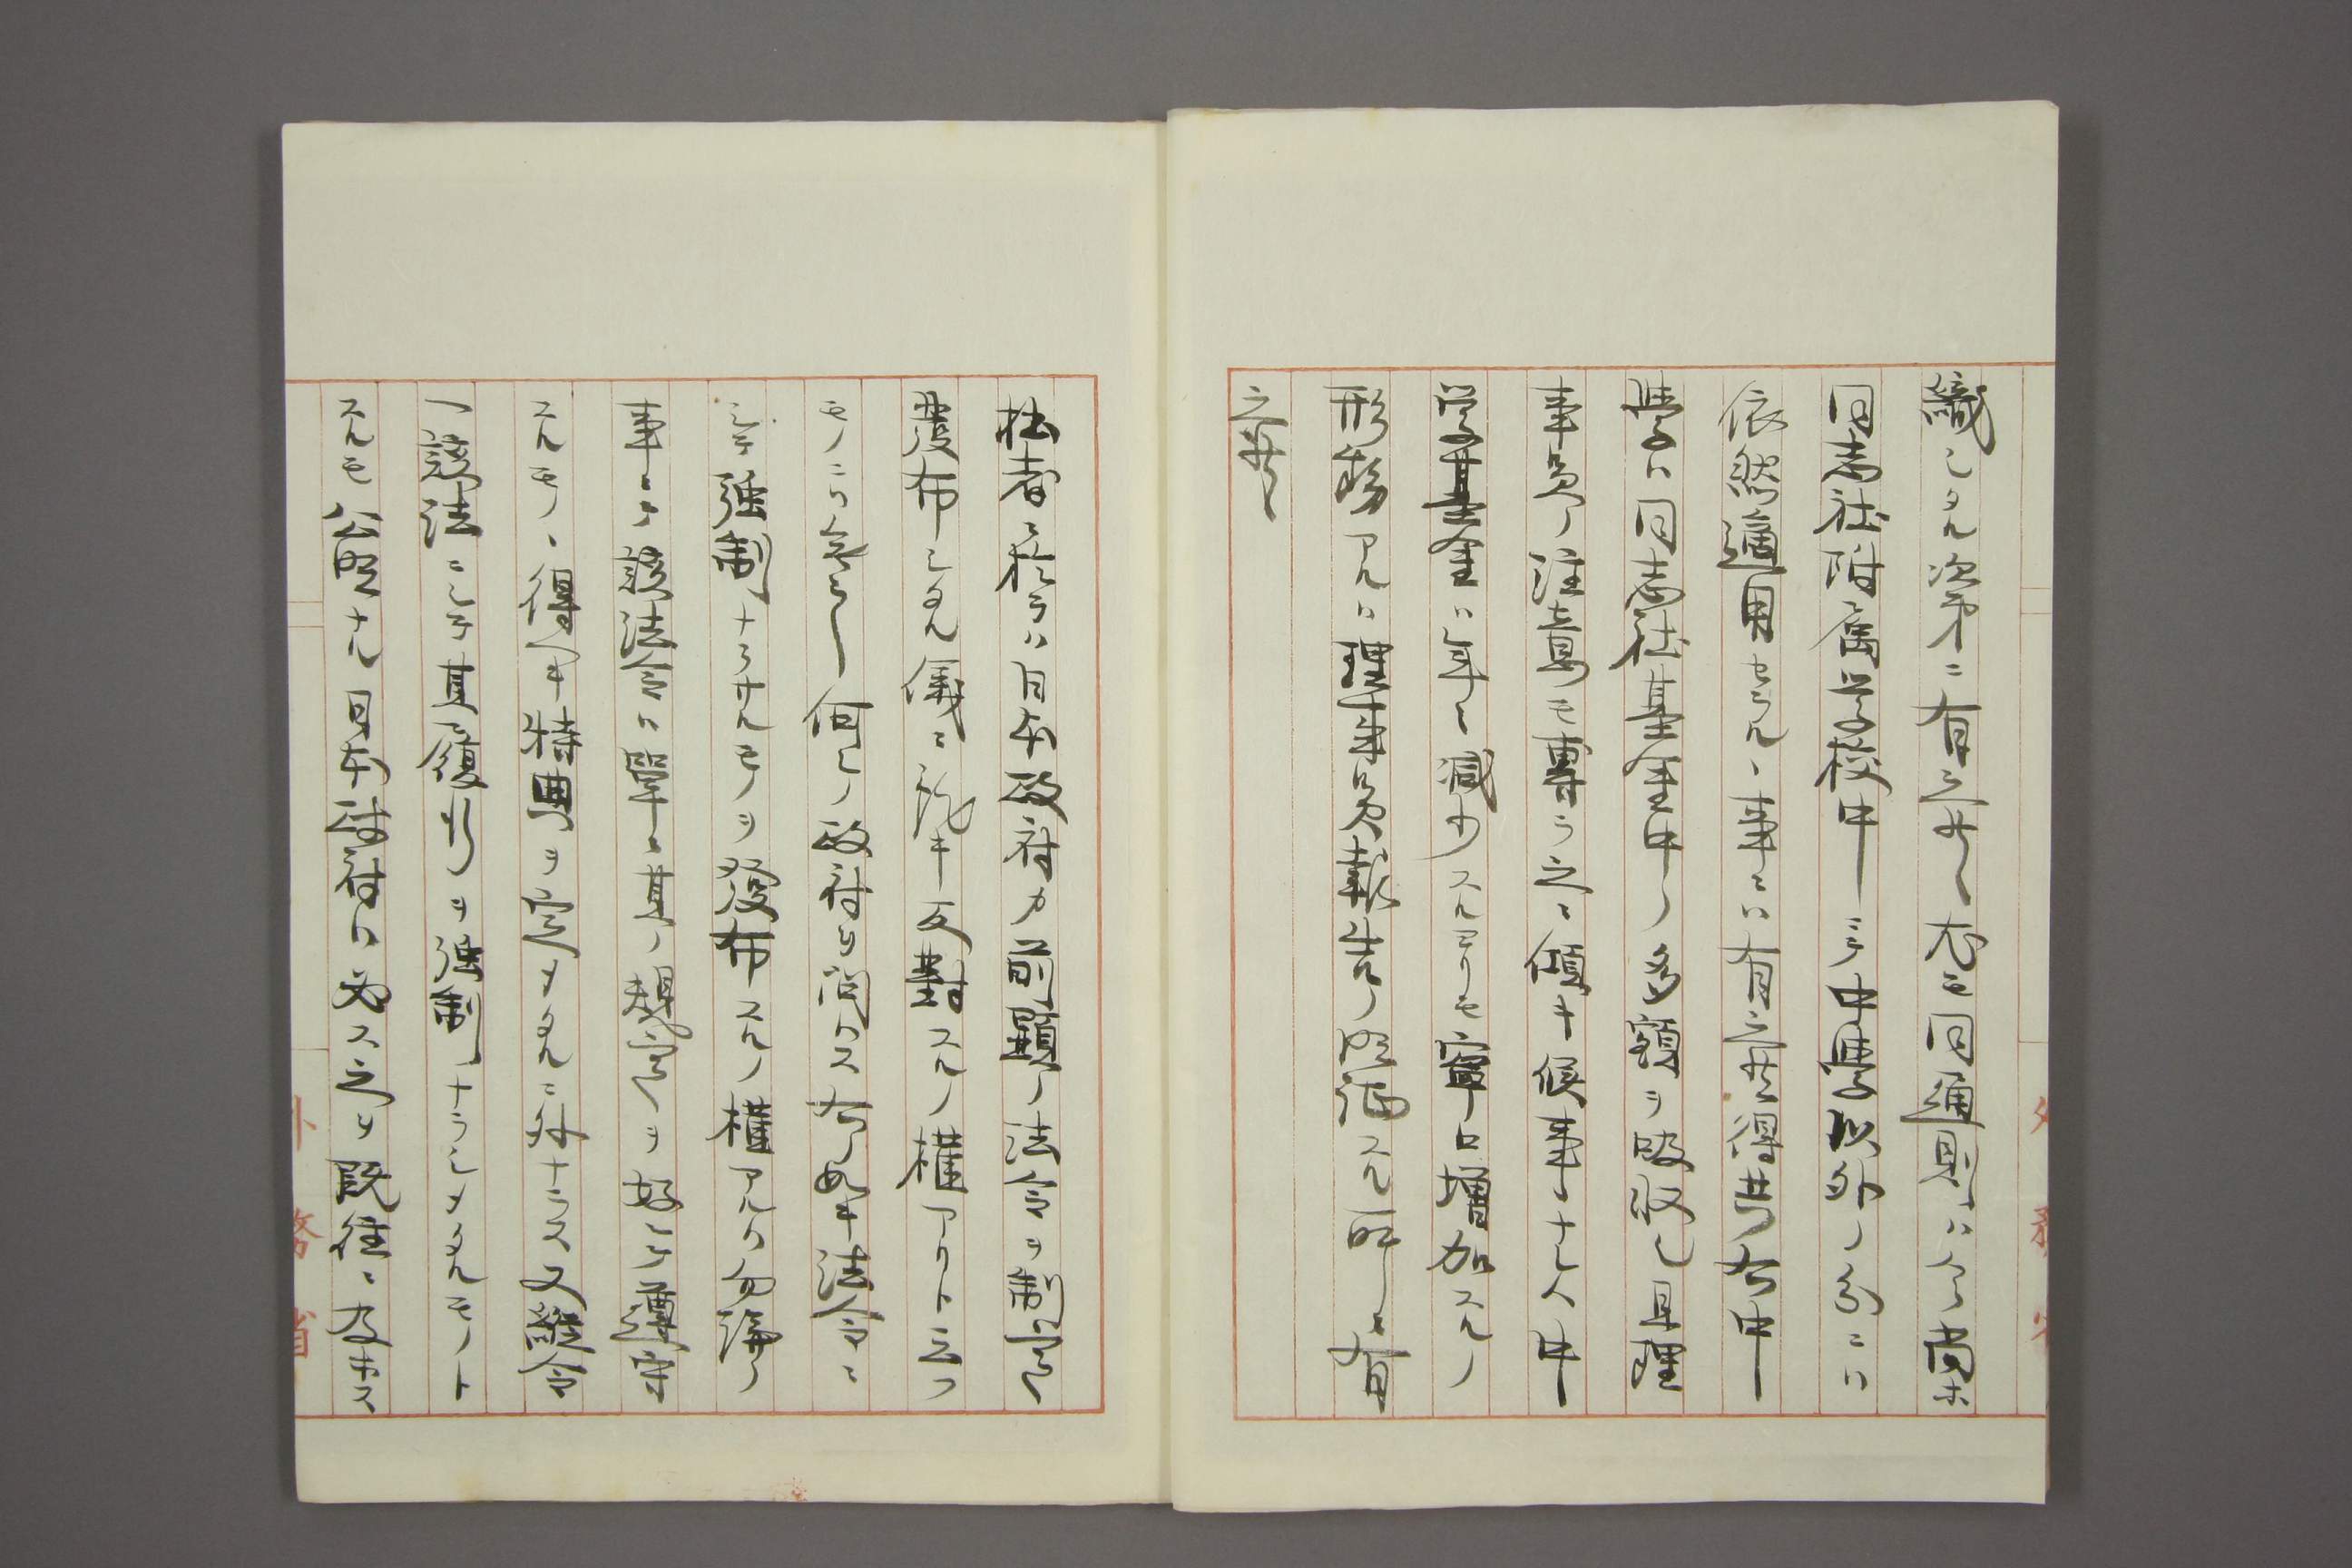 織シタル次第ニ有之候尤モ同通則ハ今尚ホ
同志社附属学校中
依然適用セラル、事ニハ有之候得共右中
学ハ同志社基金中ノ多額ヲ吸収シ且理
事員ノ注意モ専ラ之ニ傾キ候事ナレハ中
学基金ハ年々減少スルヨリモ寧ロ増加スルノ
形勢アルハ理事員報告ノ明記スル所ニ有
之候
拙者ニ於テハ日本政府カ前顕ノ法令ヲ制定
発布シタル儀ニ就キ反対スルノ権アリト云フ
モノニハ無之何レノ政府ヲ問ハス右ノ如キ法令ニ
シテ強制ナラサルモノヲ発布スルノ権アルハ勿論ノ
事ニテ該法令ハ単ニ其ノ規定ヲ好ンテ遵守
スルモノヽ得ヘキ特典ヲ定メタルニ外ナラス又縦令
ヒ該法ニシテ其履行ヲ強制ナラシメタルモノト
スルモ公明ナル日本政府ハ必ス之ヲ既往ニ及ホス
外務省